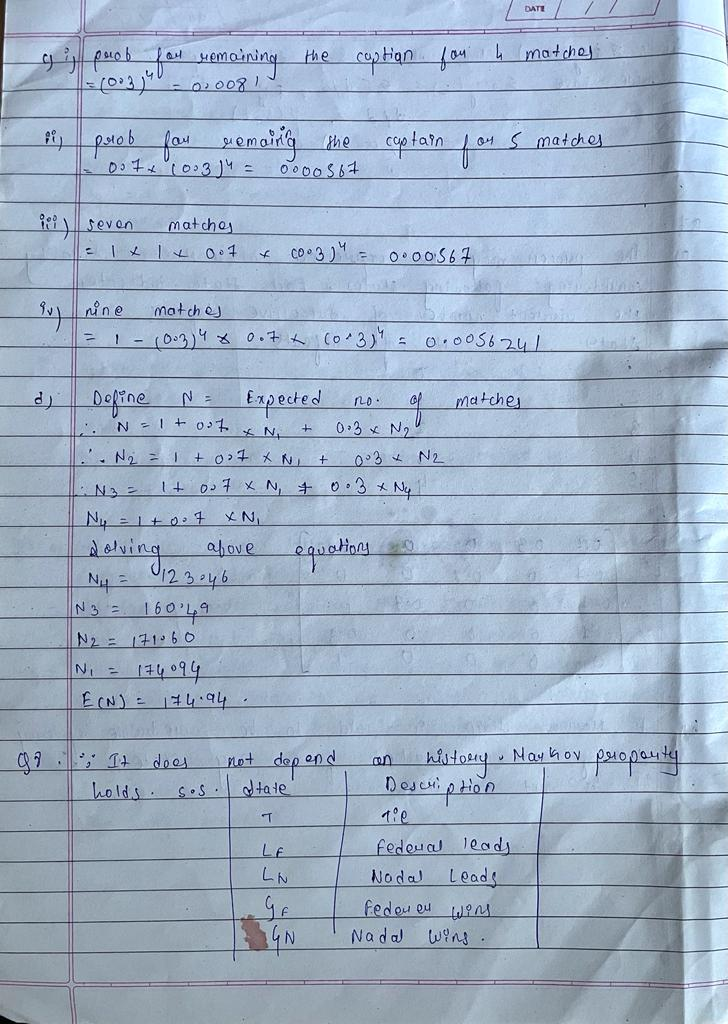 DATE
c) i) prob for remaining the captian for 4 matches
= (0.3)⁴ = 0.0081
ii) prob for remainig the captain for 5 matches
= 0.7 × (0.3)⁴ = 0.00567
iii) seven matches
= 1 × 1 × 0.7 × (0.3)⁴ = 0.00567
iv) nine matches
= 1 - (0.3)⁴ × 0.7 × (0.3)⁴ = 0.0056241
d) Define N = Expected no. of matches
∴ N = 1 + 0.7 × N₁ + 0.3 × N₂
∴ N₂ = 1 + 0.7 × N₁ + 0.3 × N₂
∴ N₃ = 1 + 0.7 × N₁ + 0.3 × N₄
N₄ = 1 + 0.7 × N₁
Solving above equations
N₄ = 123.46
N₃ = 160.49
N₂ = 171.60
N₁ = 174.94
E(N) = 174.94.
Q7. ∵ It does not depend on history. Markov property
holds. S.S. State Description
T Tie
LF Federal leads
LN Nadal Leads
GF Federer wins
GN Nadal wins.